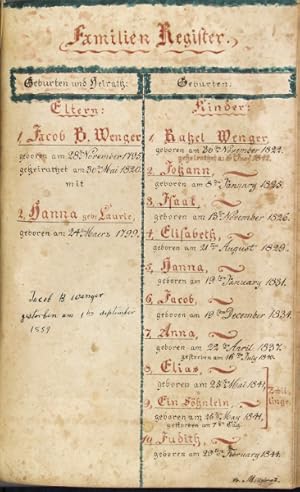 Familien Register.
Geburten und Heirath:
Eltern:
1, Jacob B. Wenger
geboren am 28t November 1795,
geheirathet am 30t Mai 1820.
mit
2, Hanna geb. Laurie,
geboren am 24t Maers 1799.
Jacob B Wenger
gestorben am 1ten September
1859
Geburten.
Kinder:
1 Rahel Wenger
geboren am 30t November 1822.
2. Johann,
geboren am 8t January 1825.
3, Isaak,
geboren am 13t November 1826.
4, Elisabeth,
geboren am 21t August 1829.
5, Hanna,
geboren am 19t January 1831.
6, Jacob,
geboren am 19t December 1834.
7, Anna,
geboren am 22t April 1837.
gestorben am 16t July 1840.
8. Elias,
geboren am 25t Mai 1841,
9, Ein Söhnlein,
geboren am 25t May 1841,
gestorben am
Zwil-
linge.
10, Judith,
geboren am 29t February 1844.